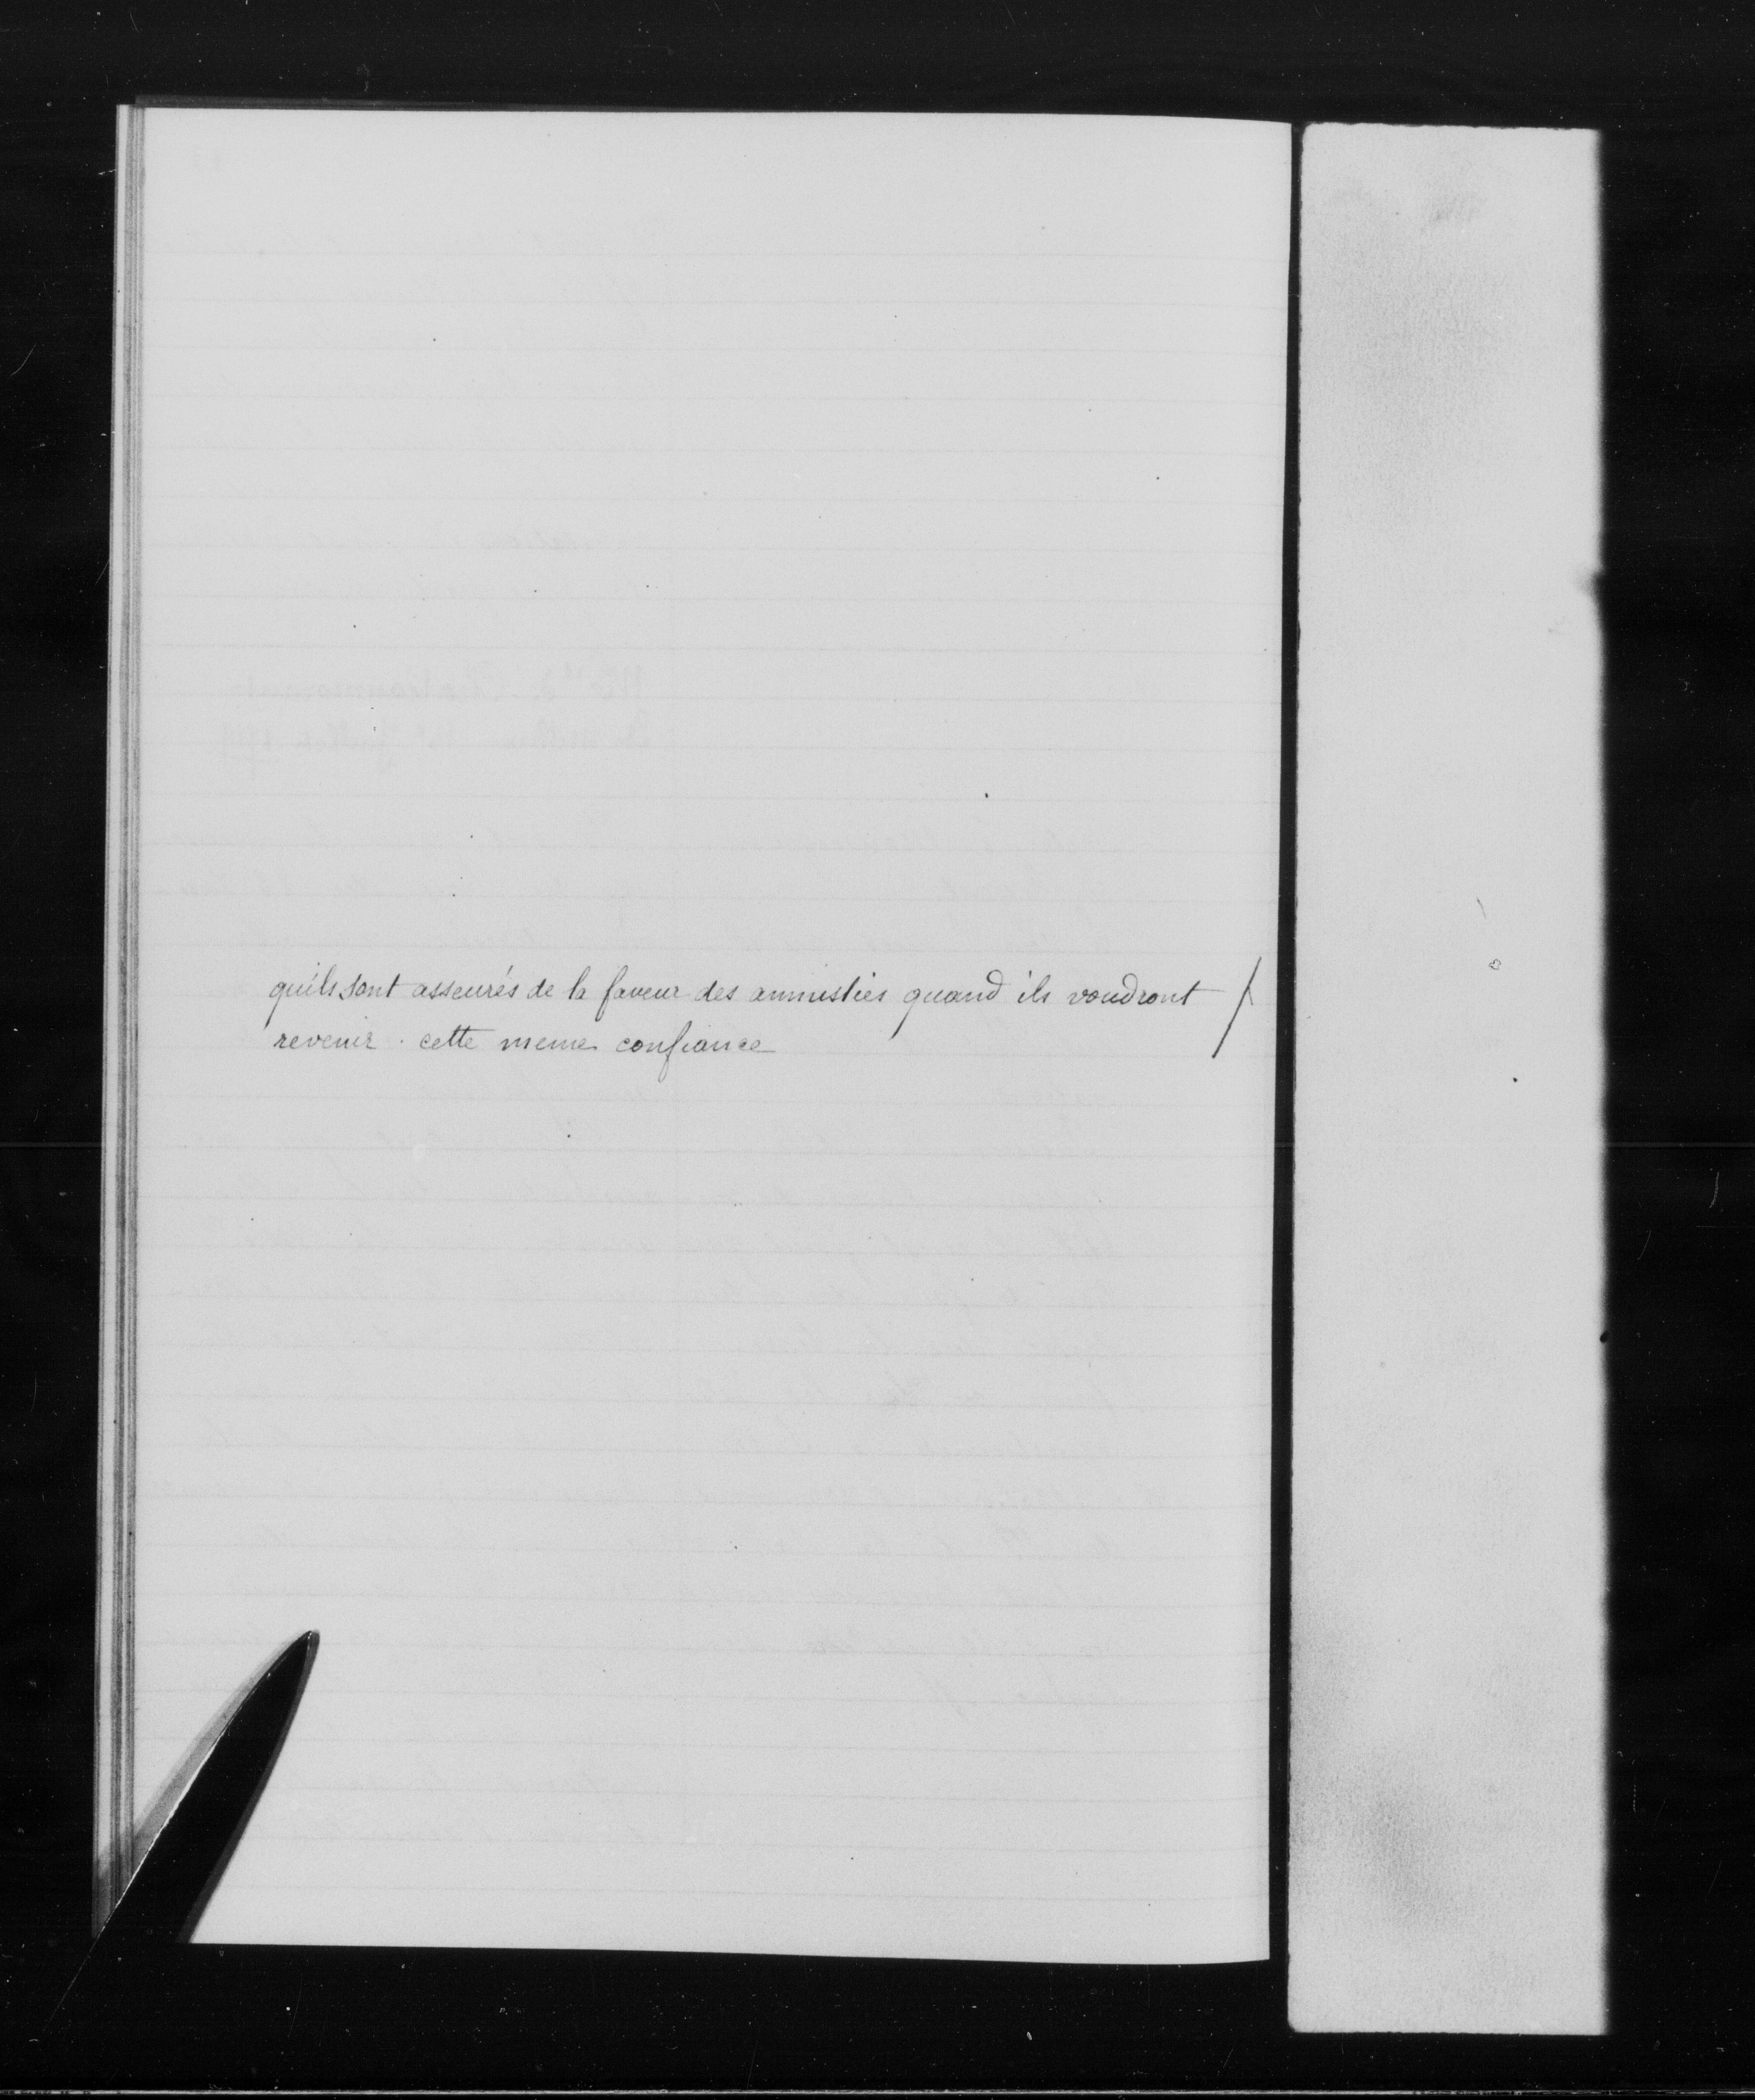 qu'ils sont asseurés de la faveur des amnisties quand ils voudront /
revenir. cette meme confiance